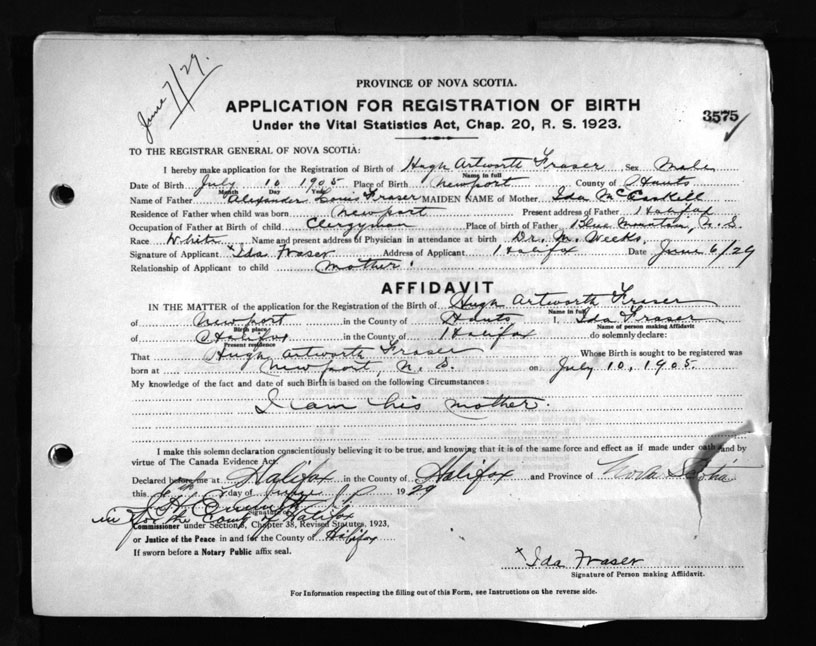 June 7/29.
PROVINCE OF NOVA SCOTIA.
APPLICATION FOR REGISTRATION OF BIRTH
3575
Under the Vital Statistics Act, Chap. 20, R. S. 1923.
TO THE REGISTRAR GENERAL OF NOVA SCOTIA:
I hereby make application for the Registration of Birth of Hugh Artworth Fraser Sex Male
Name in full
Date of Birth July 10 1905 Place of Birth Newport County of Hants
Month Day Year
Name of Father Alexander Louis Fraser MAIDEN NAME of Mother Ida McCaskill
Residence of Father when child was born Newport Present address of Father Halifax
Occupation of Father at Birth of child Clergyman Place of birth of Father Blue Mountain, N. S.
Race White Name and present address of Physician in attendance at birth Dr. M. Weeks.
Signature of Applicant x Ida Fraser Address of Applicant Halifax Date June 6/29
Relationship of Applicant to child Mother
AFFIDAVIT
IN THE MATTER of the application for the Registration of the Birth of Hugh Artworth Fraser
Name in full
of Newport in the County of Hants I, Ida Fraser
Birth place Name of person making Affidavit
of Halifax in the County of Halifax do solemnly declare:
Present residence
That Hugh Artworth Fraser Whose Birth is sought to be registered was
born at Newport, N. S. on July 10, 1905.
My knowledge of the fact and date of such Birth is based on the following Circumstances:
I am his mother.
I make this solemn declaration conscientiously believing it to be true, and knowing that it is of the same force and effect as if made under oath and by
virtue of The Canada Evidence Act.
Declared before me at Halifax in the County of Halifax and Province of Nova Scotia
this 6th day of June 1929
Signature of
in & for the County of Halifax
Commissioner under Section 3, Chapter 38, Revised Statutes, 1923,
or Justice of the Peace in and for the County of Halifax
If sworn before a Notary Public affix seal.
x Ida Fraser
Signature of Person making Affidavit.
For Information respecting the filling out of this Form, see Instructions on the reverse side.